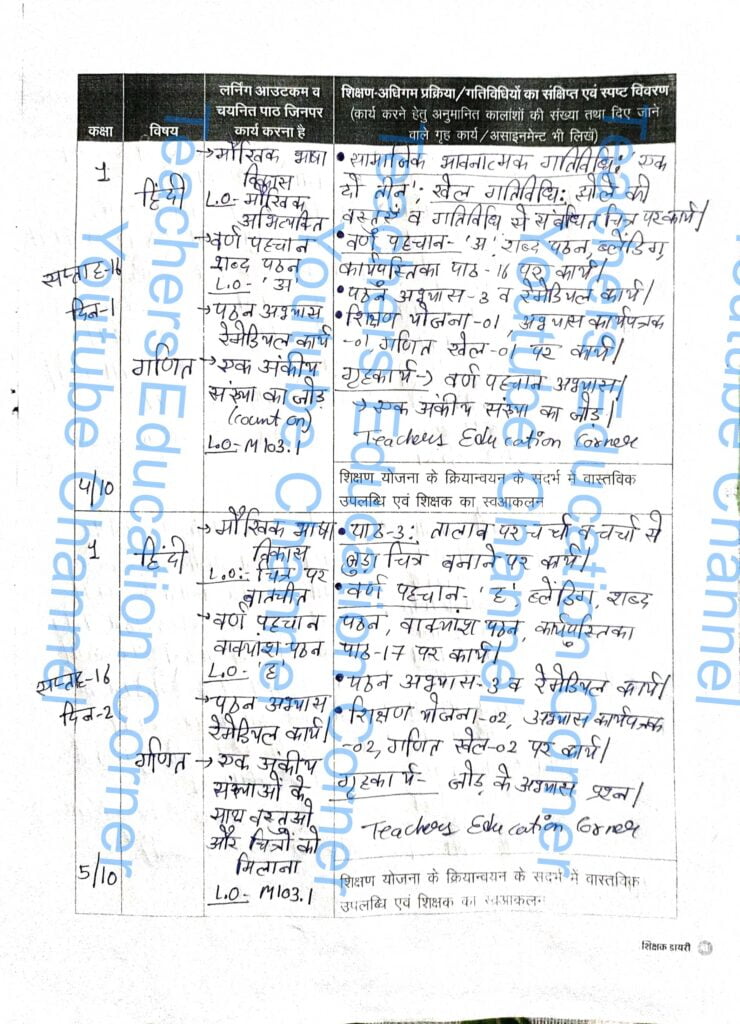 कक्षा
विषय
लर्निंग आउटकम व
चयनित पाठ जिनपर
कार्य करना है
शिक्षण-अधिगम प्रक्रिया/गतिविधियों का संक्षिप्त एवं स्पष्ट विवरण
(कार्य करने हेतु अनुमानित कालांशों की संख्या तथा दिए जाने
वाले गृह कार्य/असाइनमेंट भी लिखें)
1
हिंदी
सप्ताह-16
दिन-1
गणित
4/10
→मौखिक भाषा
विकास
L.O-मौखिक
अभिव्यक्ति
→वर्ण पहचान
शब्द पठन
L.O- 'अ'
→पठन अभ्यास
रेमेडियल कार्य
→एक अंकीय
संख्या का जोड़
(count on)
L.O-M103.1
•सामाजिक भावनात्मक गतिविधि: 'एक
दो तीन'; खेल गतिविधि: झोले की
वस्तुएँ व गतिविधि से संबंधित चित्र पर कार्य।
•वर्ण पहचान-'अ', शब्द पठन, ब्लेंडिंग,
कार्यपुस्तिका पाठ-16 पर कार्य।
•पठन अभ्यास-3 व रेमेडियल कार्य।
•शिक्षण योजना-01, अभ्यास कार्यपत्रक
-01, गणित खेल-01 पर कार्य।
गृहकार्य→ वर्ण पहचान अभ्यास।
→ एक अंकीय संख्या का जोड़।
Teachers Education Corner
शिक्षण योजना के क्रियान्वयन के संदर्भ में वास्तविक
उपलब्धि एवं शिक्षक का स्वआकलन
1
हिंदी
सप्ताह-16
दिन-2
गणित
5/10
→मौखिक भाषा
विकास
L.O:-चित्र पर
बातचीत
→वर्ण पहचान
वाक्यांश पठन
L.O- 'ह'
→पठन अभ्यास
रेमेडियल कार्य।
→एक अंकीय
संख्याओं के
साथ वस्तुओं
और चित्रों को
मिलाना
L.O- M103.1
•पाठ-3: तालाब पर चर्चा व चर्चा से
जुड़ा चित्र बनाने पर कार्य।
•वर्ण पहचान- 'ह', ब्लेंडिंग, शब्द
पठन, वाक्यांश पठन, कार्यपुस्तिका
पाठ-17 पर कार्य।
•पठन अभ्यास-3 व रेमेडियल कार्य।
•शिक्षण योजना-02, अभ्यास कार्यपत्रक
-02, गणित खेल-02 पर कार्य।
गृहकार्य- जोड़ के अभ्यास प्रश्न।
Teachers Education Corner
शिक्षण योजना के क्रियान्वयन के संदर्भ में वास्तविक
उपलब्धि एवं शिक्षक का स्वआकलन
शिक्षक डायरी
Teachers Education Corner
Youtube Channel
Teachers Education Corner
Youtube Channel